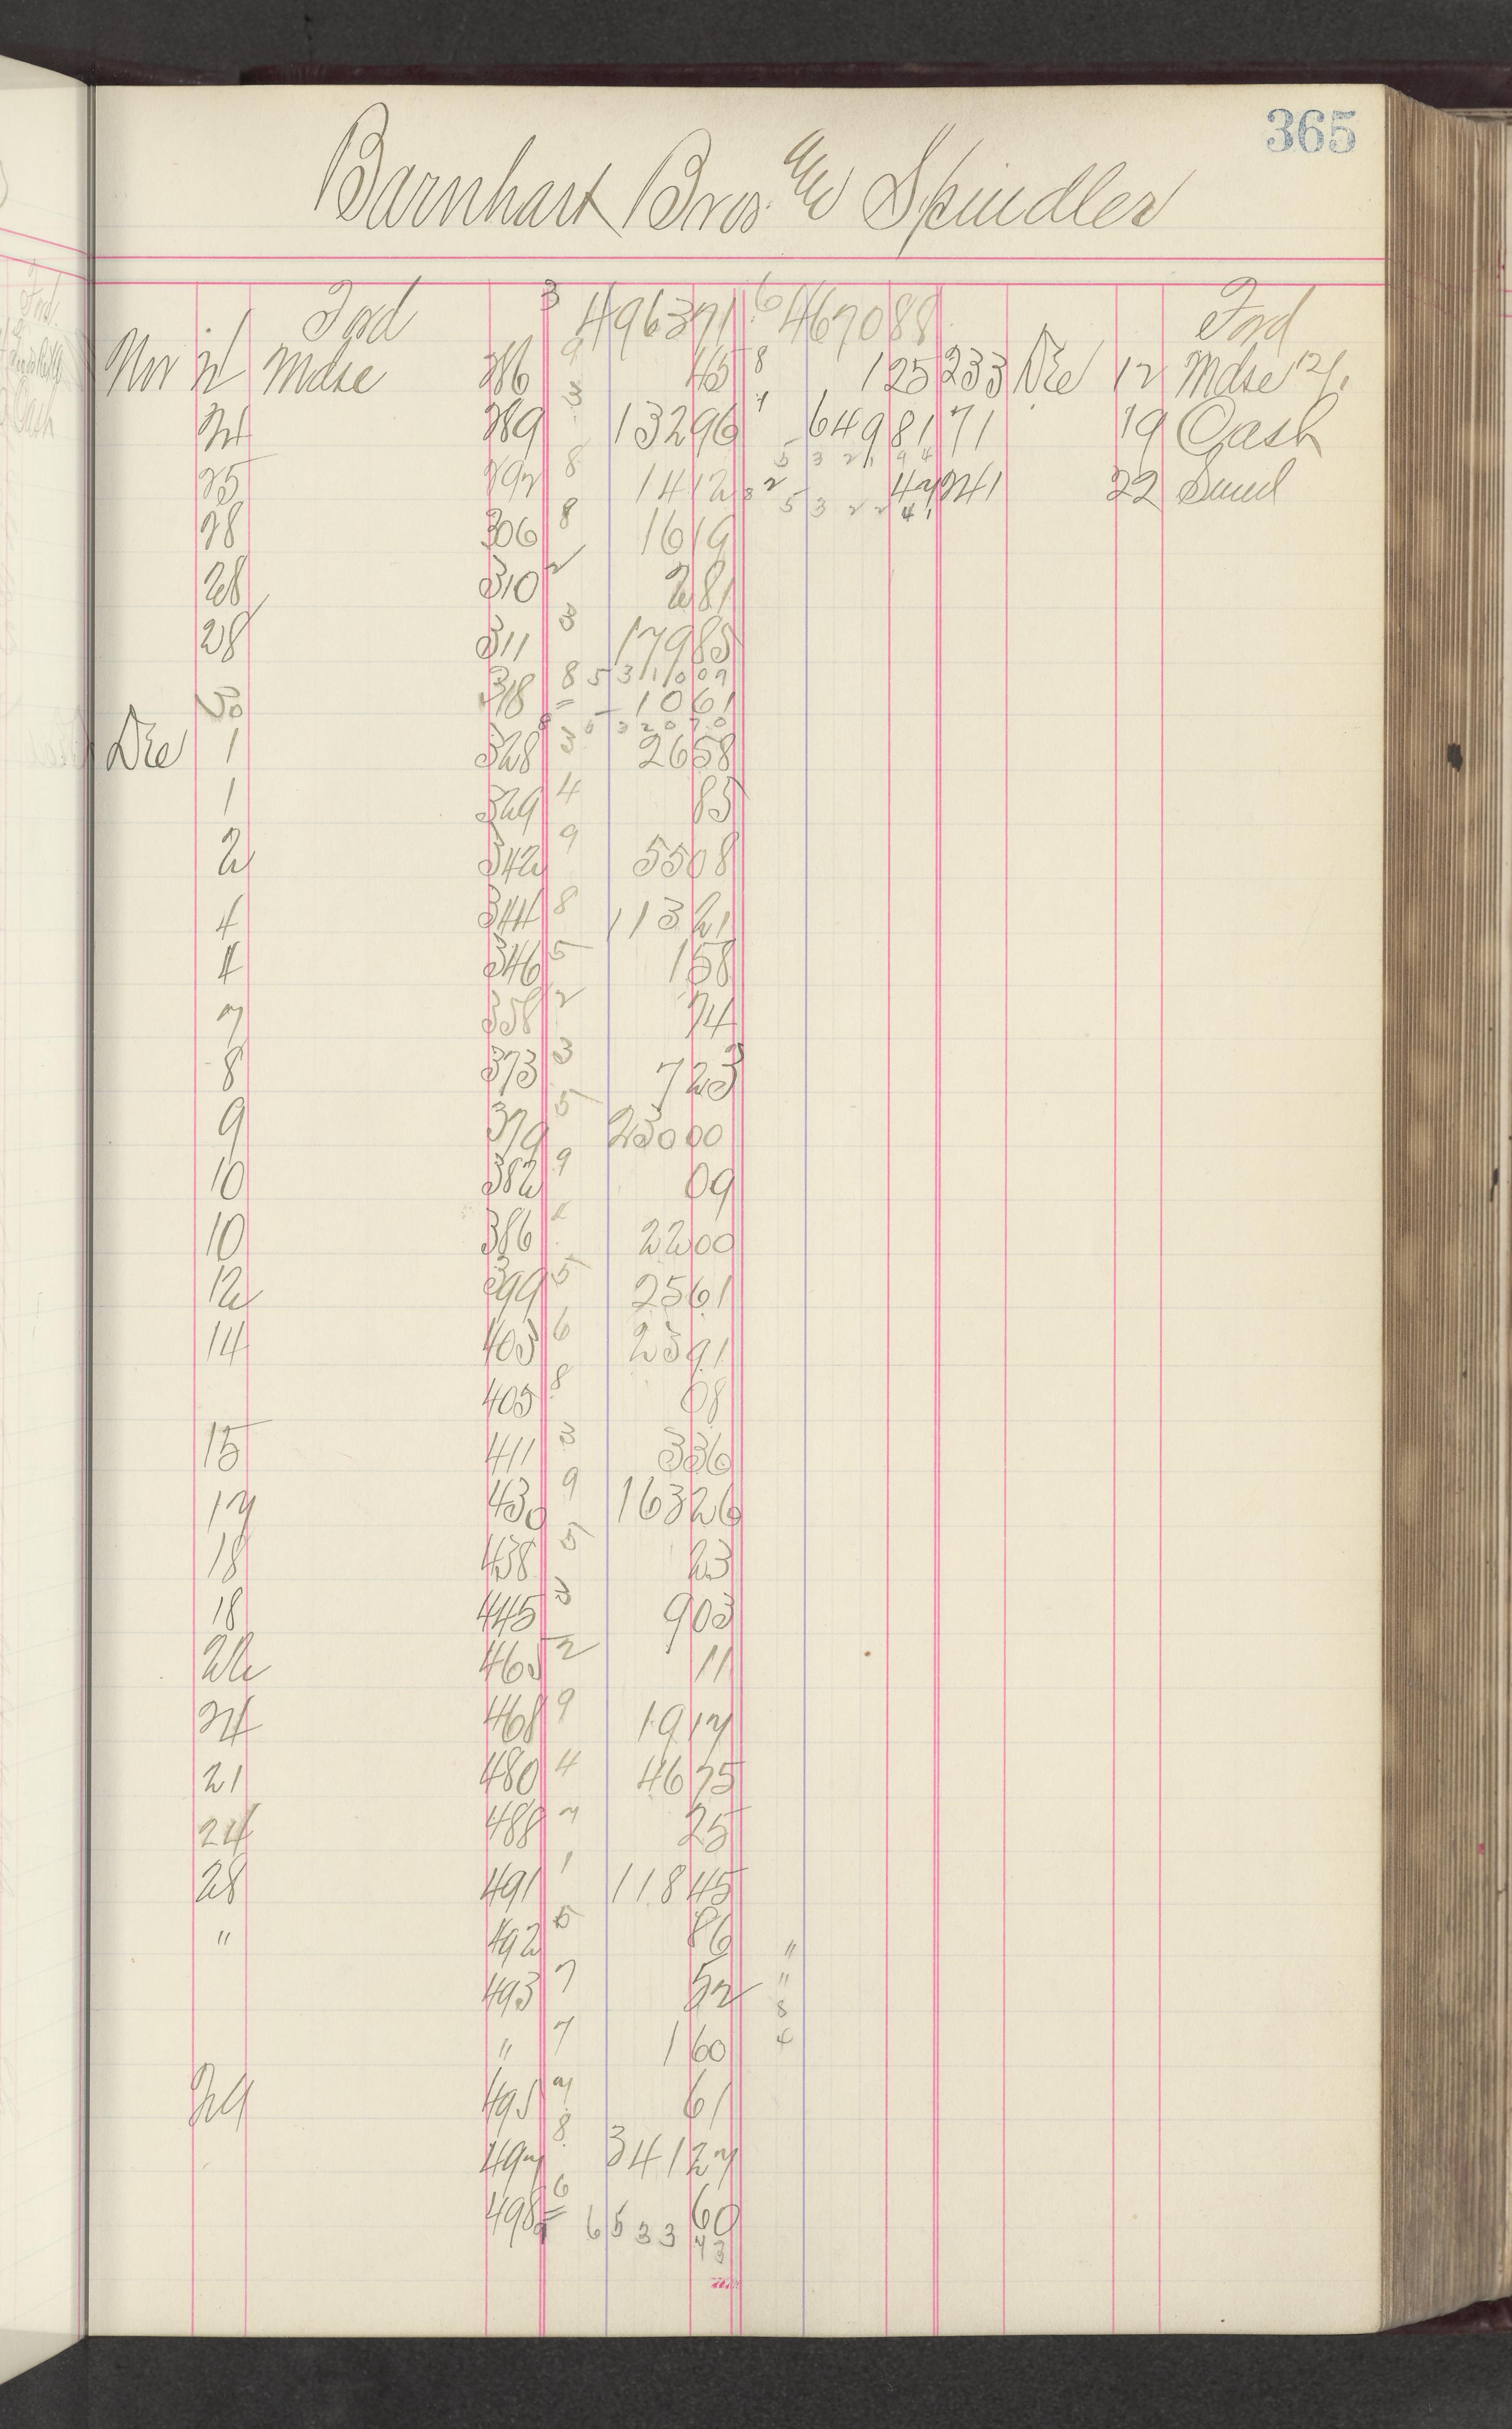 365
Barnhart Bros and Spindler
Ford 3 496371 6 467088 Ford
Nov Mdse 286 9 45 8 125 233 Dec 12 Mdse
24 289 3 13296 649 81 71 19 Cash
5 3 2 1 9 4
25 292 8 1412 2 47 241 22 Sund
5 3 2 2 4 1
28 306 8 1619
28 310 2 281
28 311 3 17985
5 3 1 1 0 0 9
30 318 8 1061
8 5 3 2 0 7 0
Dec 1 328 3 2658
1 329 4 85
2 342 9 5508
4 344 8 11321
4 346 5 158
7 358 2 74
8 373 3 723
9 379 5 23000
10 382 9 09
10 386 2200
12 399 5 2561
14 403 6 2391
405 8 08
15 411 3 336
17 430 9 16326
18 438 5 23
18 445 3 903
22 465 2 11
24 468 9 1917
21 480 4 4675
24 488 7 25
28 491 1 11845
" 492 5 86 "
493 7 52 "
8
" 7 160 4
29 495 7 61
497 8 34127
498 6 60
6 5 3 3 7 3